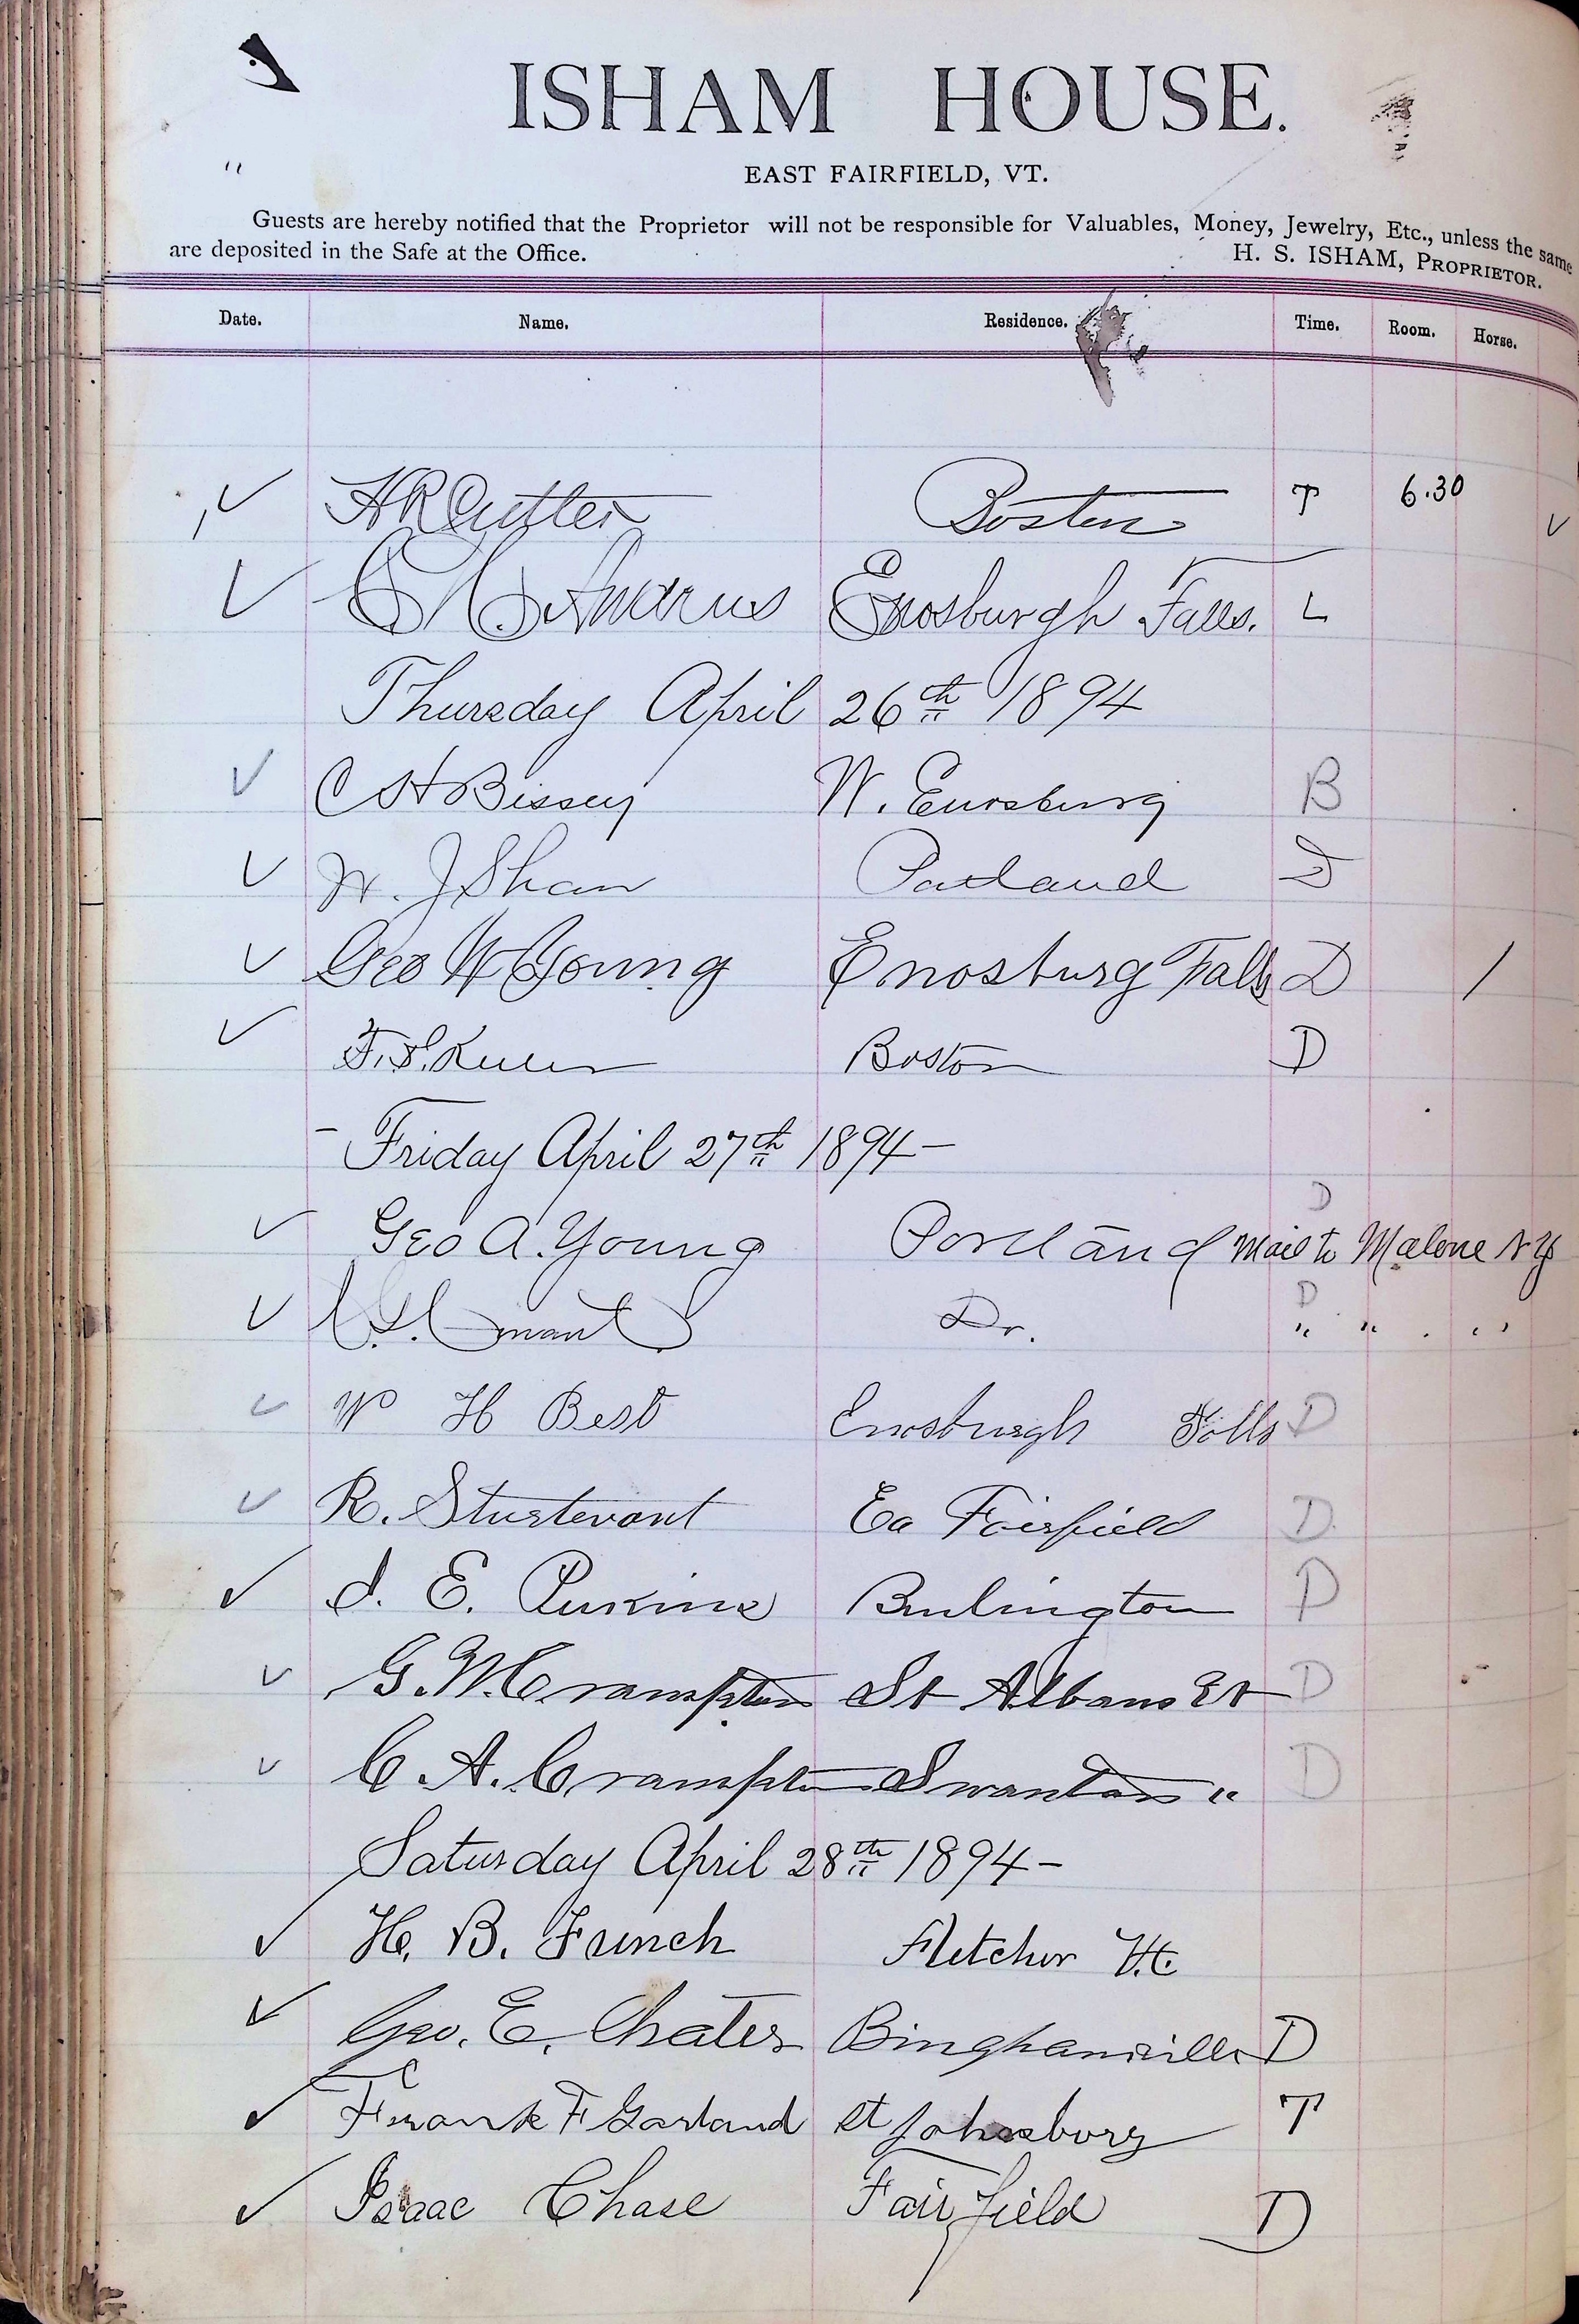 ISHAM HOUSE.
EAST FAIRFIELD, VT.
Guests are hereby notified that the Proprietor will not be responsible for Valuables, Money, Jewelry, Etc., unless the same
are deposited in the Safe at the Office. H. S. ISHAM, PROPRIETOR.
Date. Name. Residence. Time. Room. Horse.
HR Cutler Boston T 6.30
Andrus Enosburgh Falls. L
Thursday April 26th 1894
C H Bissey W. Enosburg B
J Shaw Portland D
Geo W Young Enosburg Falls D /
F. S. Boston D
- Friday April 27th 1894 -
D
Geo A. Young Portland Mail to Malone NY
D
Do. " " " "
W H Best Enosburgh Falls D
R. Sturtevant Ea Fairfield D.
J. E. Perkins Burlington D
G. W. Crampton St Albans Vt D
C. A. Crampton Swanton " D
Saturday April 28th 1894 -
H. B. French Fletcher Vt.
Geo. E. Chates Binghamville D
Frank F Garland St Johnsbury T
Isaac Chase Fairfield D